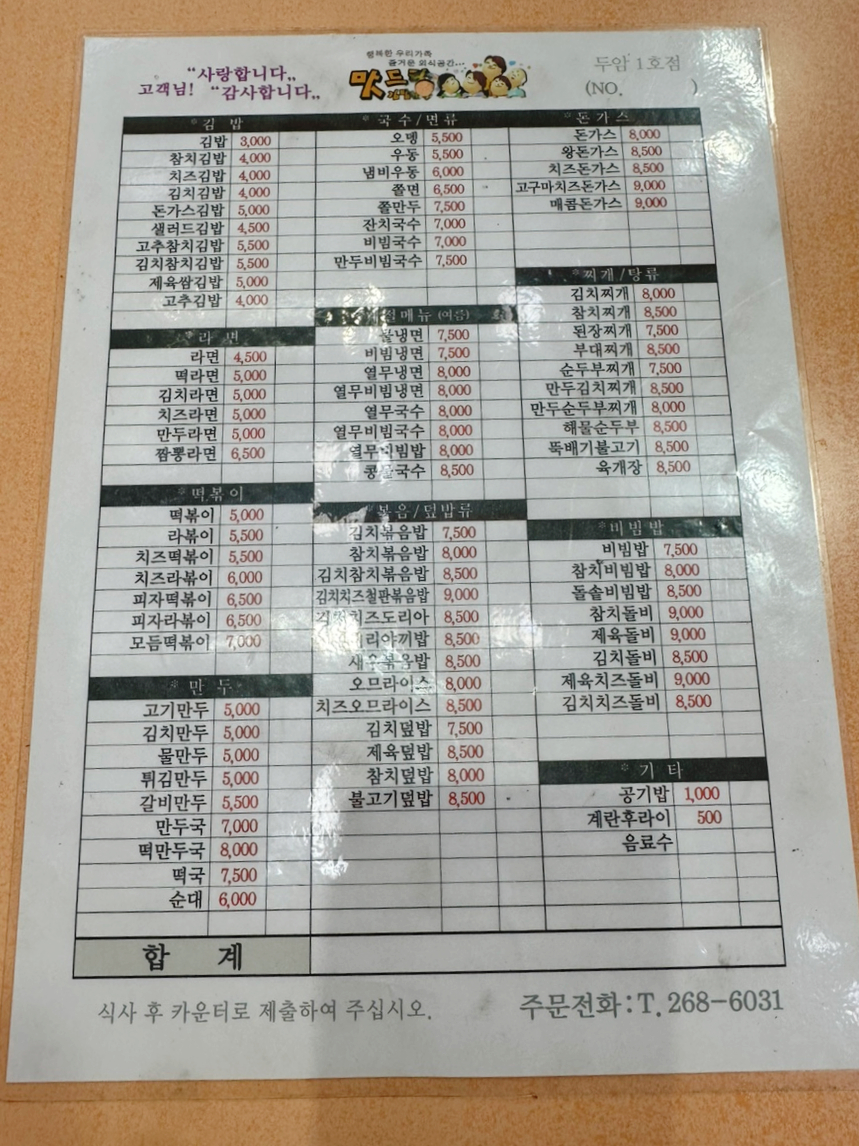 행복한 우리가족
즐거운 외식공간...
"사랑합니다„
고객님! "감사합니다„
맛드
두암 1호점
(NO. )
*김 밥
김밥 3,000
참치김밥 4,000
치즈김밥 4,000
김치김밥 4,000
돈가스김밥 5,000
샐러드김밥 4,500
고추참치김밥 5,500
김치참치김밥 5,500
제육쌈김밥 5,000
고추김밥 4,000
*라 면
라면 4,500
떡라면 5,000
김치라면 5,000
치즈라면 5,000
만두라면 5,000
짬뽕라면 6,500
*떡볶이
떡볶이 5,000
라볶이 5,500
치즈떡볶이 5,500
치즈라볶이 6,000
피자떡볶이 6,500
피자라볶이 6,500
모듬떡볶이 7,000
*만 두
고기만두 5,000
김치만두 5,000
물만두 5,000
튀김만두 5,000
갈비만두 5,500
만두국 7,000
떡만두국 8,000
떡국 7,500
순대 6,000
*국수/면류
오뎅 5,500
우동 5,500
냄비우동 6,000
쫄면 6,500
쫄만두 7,500
잔치국수 7,000
비빔국수 7,000
만두비빔국수 7,500
절메뉴 (여름)
물냉면 7,500
비빔냉면 7,500
열무냉면 8,000
열무비빔냉면 8,000
열무국수 8,000
열무비빔국수 8,000
열무비빔밥 8,000
콩물국수 8,500
볶음/덮밥류
김치볶음밥 7,500
참치볶음밥 8,000
김치참치볶음밥 8,500
김치치즈철판볶음밥 9,000
김치치즈도리아 8,500
리야끼밥 8,500
새우볶음밥 8,500
오므라이스 8,000
치즈오므라이스 8,500
김치덮밥 7,500
제육덮밥 8,500
참치덮밥 8,000
불고기덮밥 8,500
*돈가스
돈가스 8,000
왕돈가스 8,500
치즈돈가스 8,500
고구마치즈돈가스 9,000
매콤돈가스 9,000
*찌개/탕류
김치찌개 8,000
참치찌개 8,500
된장찌개 7,500
부대찌개 8,500
순두부찌개 7,500
만두김치찌개 8,500
만두순두부찌개 8,000
해물순두부 8,500
뚝배기불고기 8,500
육개장 8,500
*비빔밥
비빔밥 7,500
참치비빔밥 8,000
돌솥비빔밥 8,500
참치돌비 9,000
제육돌비 9,000
김치돌비 8,500
제육치즈돌비 9,000
김치치즈돌비 8,500
*기 타
공기밥 1,000
계란후라이 500
음료수
합 계
식사 후 카운터로 제출하여 주십시오.
주문전화:T. 268-6031